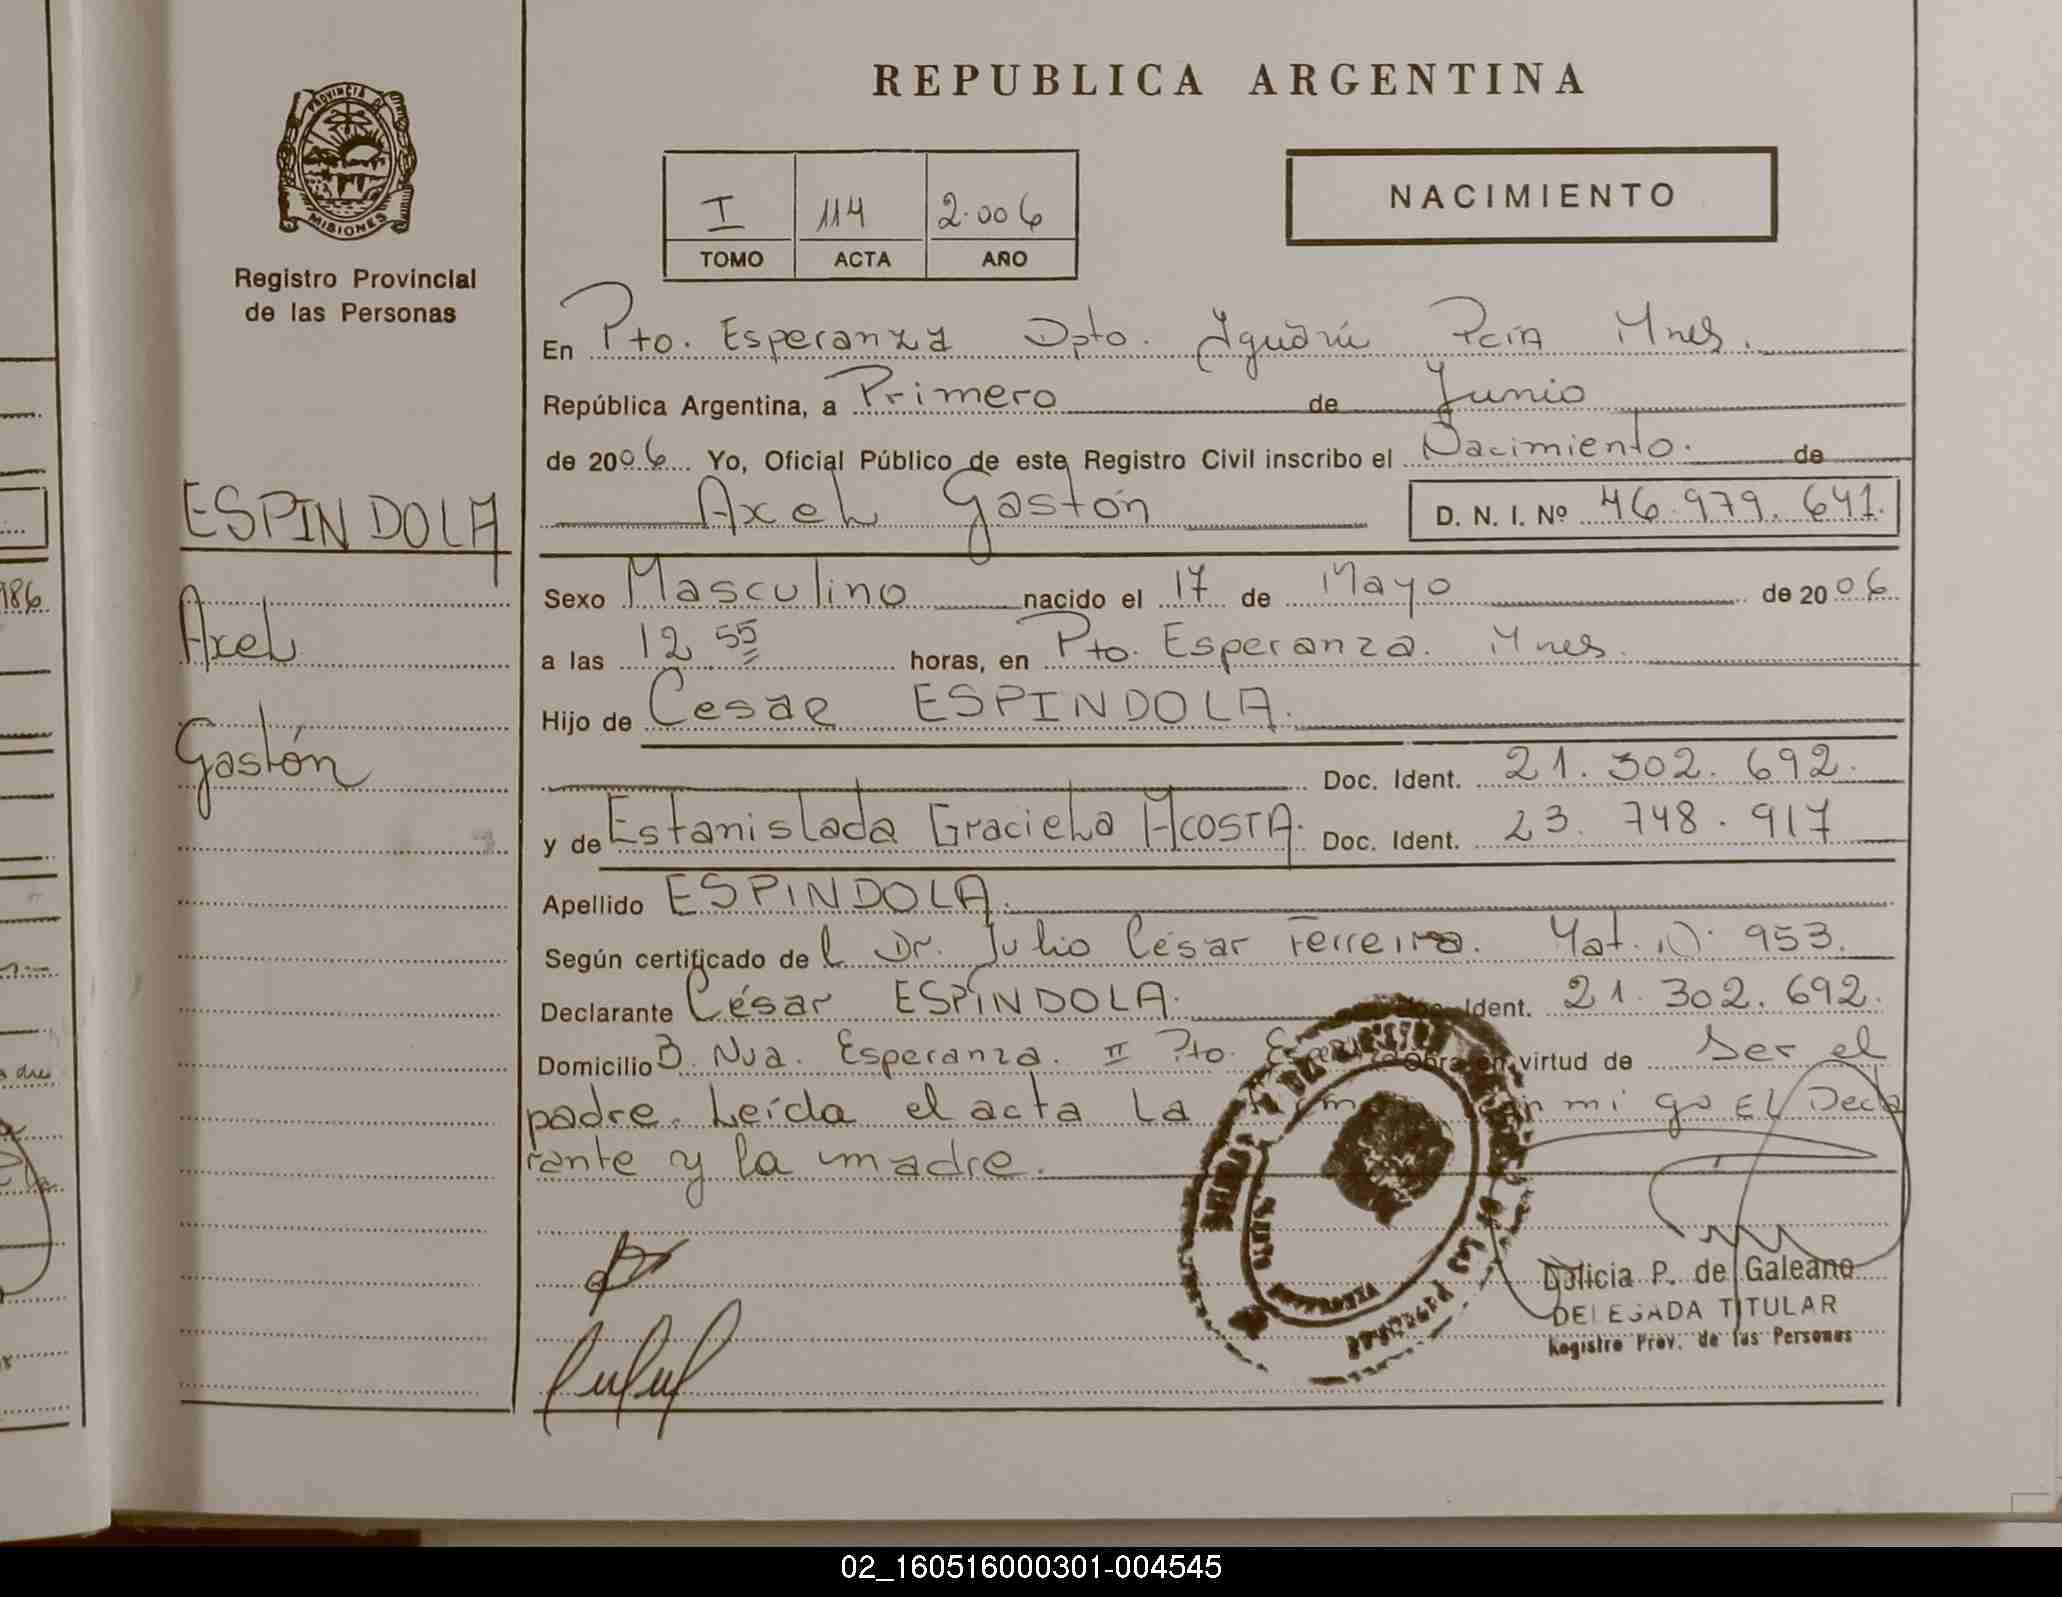 REPUBLICA ARGENTINA
PROVINCIA DE
MISIONES
Registro Provincial
de las Personas
I 114 2.006
TOMO ACTA AÑO
NACIMIENTO
En Pto. Esperanza Dpto. Iguazú Pcia Mnes.
República Argentina, a Primero de Junio
de 2006 Yo, Oficial Público de este Registro Civil inscribo el Nacimiento. de
Axel Gastón D. N. I. Nº 46.979.641.
ESPINDOLA
Axel
Gastón
Sexo Masculino nacido el 17 de Mayo de 2006
a las 12 55 horas, en Pto. Esperanza. Mnes.
Hijo de Cesar ESPINDOLA.
Doc. Ident. 21.302.692.
y de Estanislada Graciela ACOSTA. Doc. Ident. 23.748.917
Apellido ESPINDOLA.
Según certificado del Dr. Julio César Ferreira. Mat. Nº 953.
Declarante César ESPINDOLA. Ident. 21.302.692.
Domicilio B. Nva. Esperanza. II Pto. Obra en virtud de Ser el
padre. Leída el acta la mi go El Decla
rante y la madre.
Dolicia P. de Galeano
DELEGADA TITULAR
Registro Prov. de las Personas
986
02_160516000301-004545